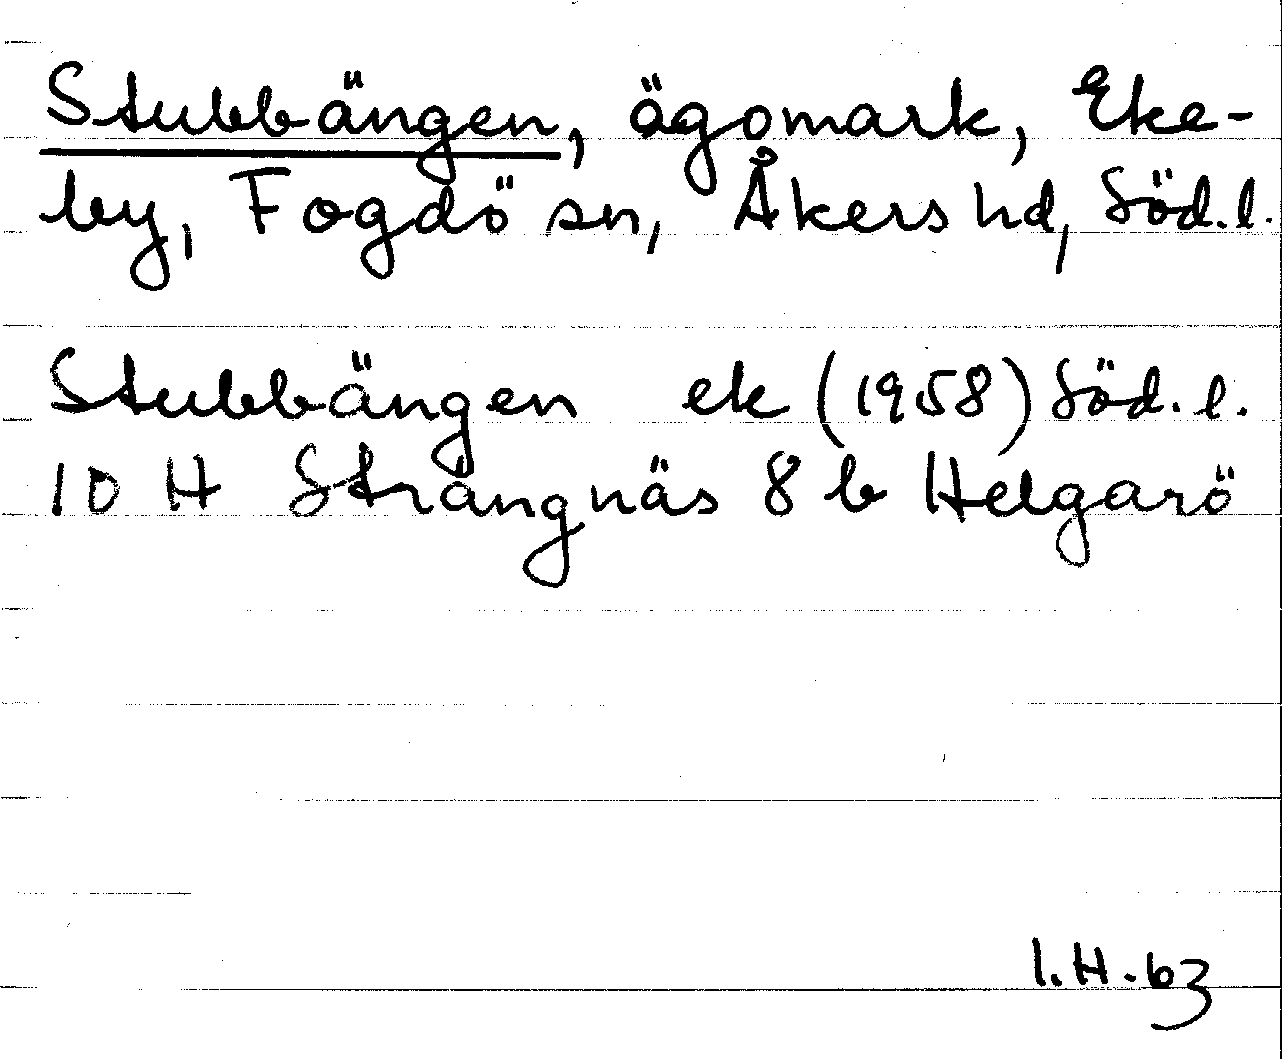 Stubbängen, ägomark, Eke-
by, Fogdö sn, Åkers hd, Söd.l.
Stubbängen ek (1958) Söd.l.
10 H Strängnäs 8 b Helgarö
I.H.63